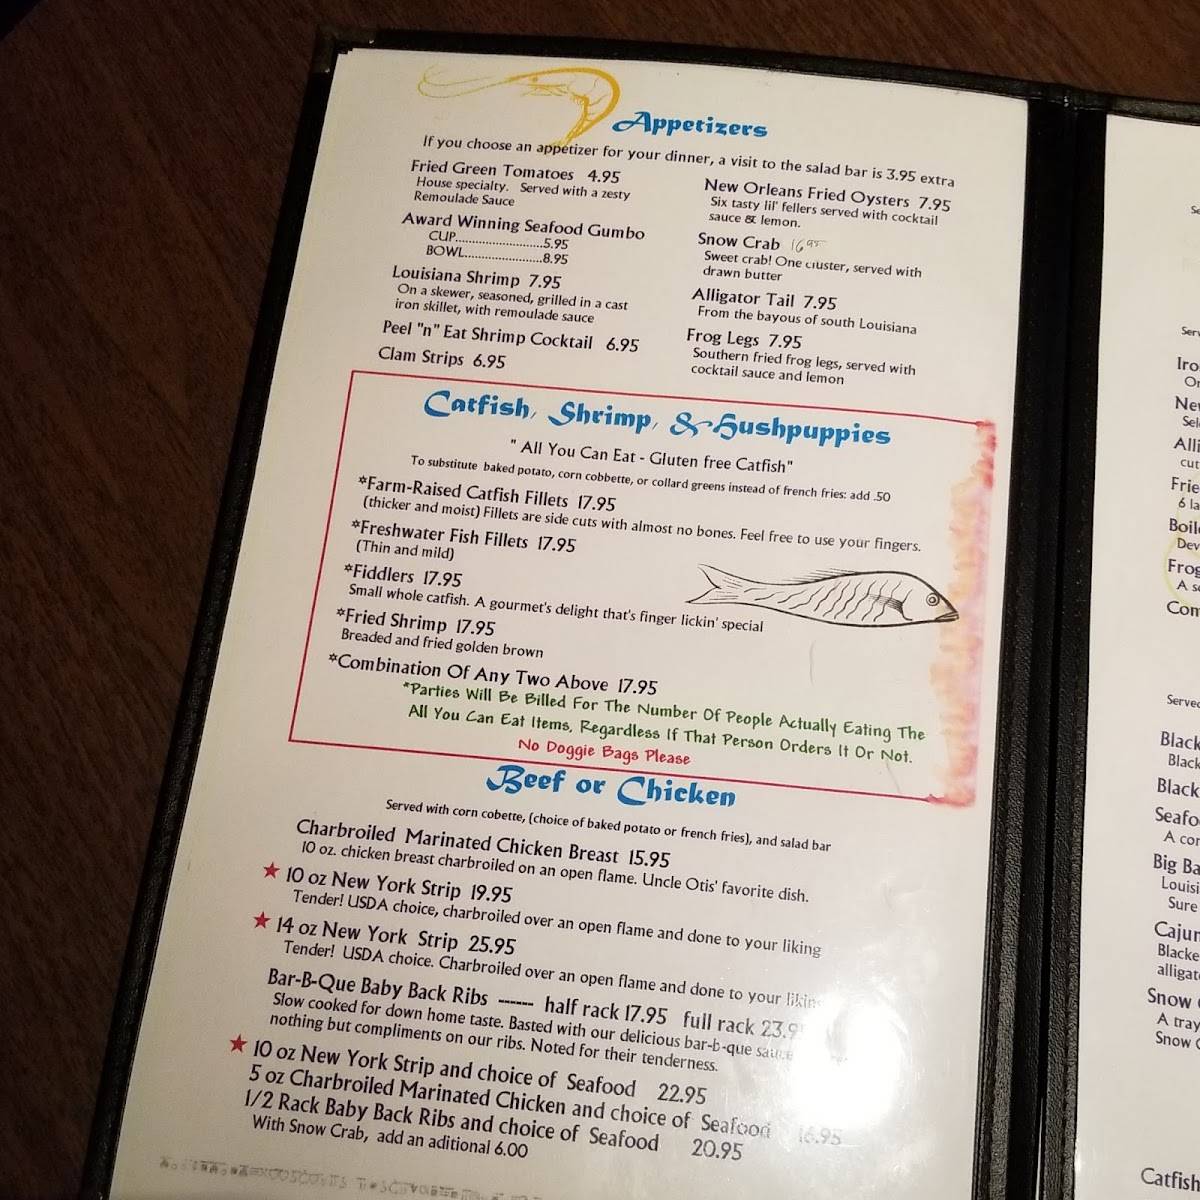 Appetizers
If you choose an appetizer for your dinner, a visit to the salad bar is 3.95 extra
Fried Green Tomatoes 4.95
House specialty. Served with a zesty
Remoulade Sauce
Award Winning Seafood Gumbo
CUP..........................5.95
BOWL.......................8.95
Louisiana Shrimp 7.95
On a skewer, seasoned, grilled in a cast
iron skillet, with remoulade sauce
Peel "n" Eat Shrimp Cocktail 6.95
Clam Strips 6.95
New Orleans Fried Oysters 7.95
Six tasty lil' fellers served with cocktail
sauce & lemon.
Snow Crab 16.95
Sweet crab! One cluster, served with
drawn butter
Alligator Tail 7.95
From the bayous of south Louisiana
Frog Legs 7.95
Southern fried frog legs, served with
cocktail sauce and lemon
Catfish, Shrimp, & Hushpuppies
" All You Can Eat - Gluten free Catfish"
To substitute baked potato, corn cobbette, or collard greens instead of french fries: add .50
*Farm-Raised Catfish Fillets 17.95
(thicker and moist) Fillets are side cuts with almost no bones. Feel free to use your fingers.
*Freshwater Fish Fillets 17.95
(Thin and mild)
*Fiddlers 17.95
Small whole catfish. A gourmet's delight that's finger lickin' special
*Fried Shrimp 17.95
Breaded and fried golden brown
*Combination Of Any Two Above 17.95
*Parties Will Be Billed For The Number Of People Actually Eating The
All You Can Eat Items, Regardless If That Person Orders It Or Not.
No Doggie Bags Please
Beef or Chicken
Served with corn cobette, (choice of baked potato or french fries), and salad bar
Charbroiled Marinated Chicken Breast 15.95
10 oz. chicken breast charbroiled on an open flame. Uncle Otis' favorite dish.
★ 10 oz New York Strip 19.95
Tender! USDA choice, charbroiled over an open flame and done to your liking
★ 14 oz New York Strip 25.95
Tender! USDA choice. Charbroiled over an open flame and done to your likin
Bar-B-Que Baby Back Ribs ------ half rack 17.95 full rack 23.9
Slow cooked for down home taste. Basted with our delicious bar-b-que sauce
nothing but compliments on our ribs. Noted for their tenderness.
★ 10 oz New York Strip and choice of Seafood 22.95
5 oz Charbroiled Marinated Chicken and choice of Seafood 16.95
1/2 Rack Baby Back Ribs and choice of Seafood 20.95
With Snow Crab, add an aditional 6.00
Se
Serv
Iro
Or
Ne
Sel
Alli
cut
Frie
6 la
Boil
Dev
Frog
A s
Com
Served
Black
Black
Black
Seafo
A cor
Big Ba
Louisi
Sure
Cajun
Blacke
alligat
Snow
A tray
Snow C
Catfish